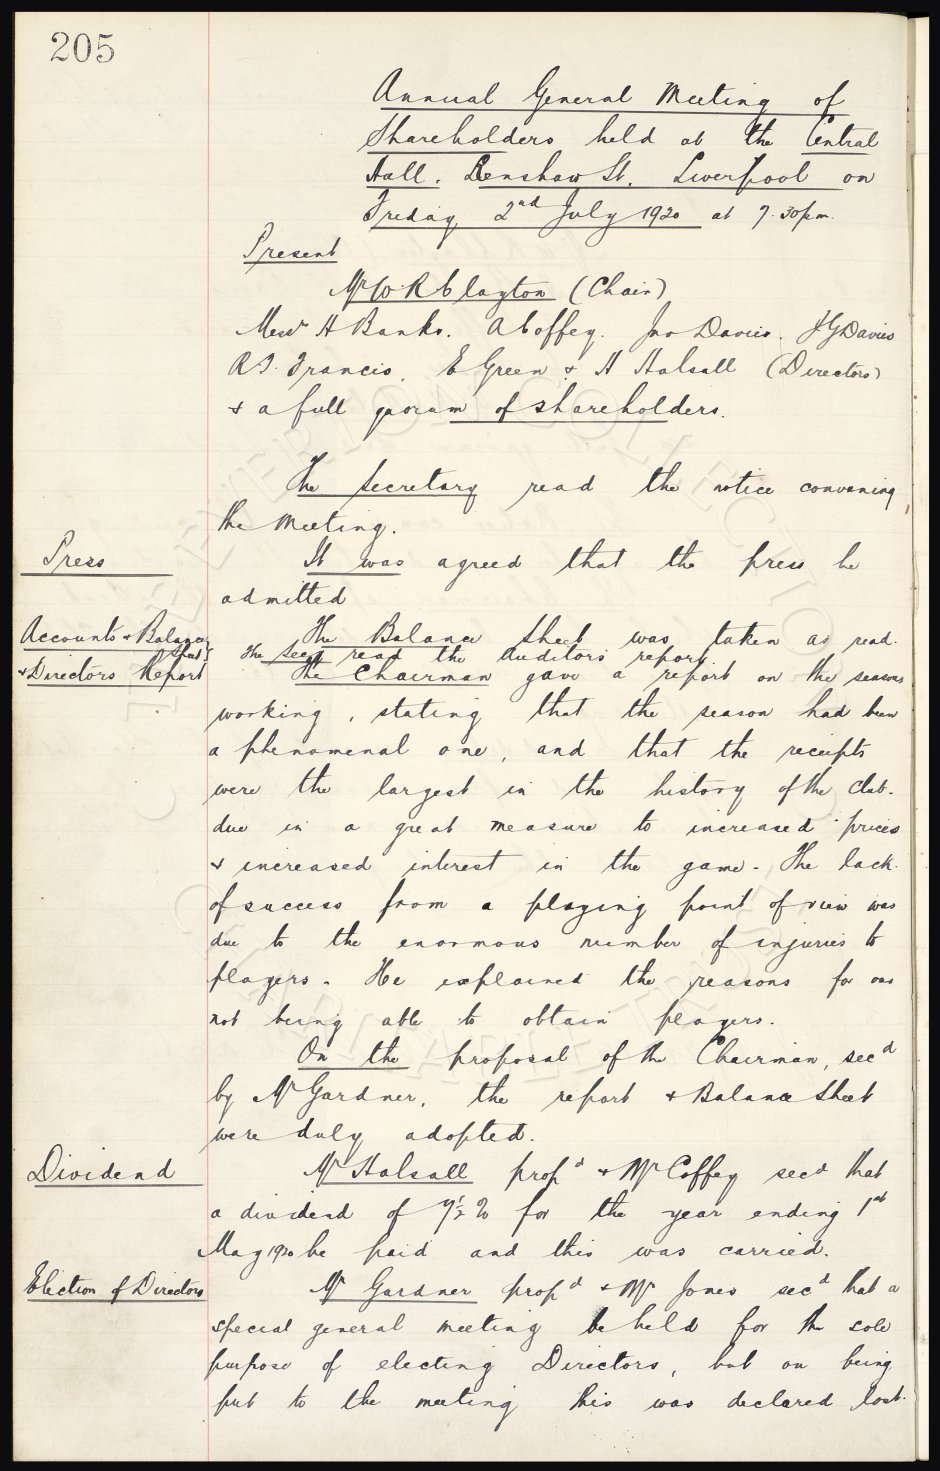 205
Annual General Meeting of
Shareholders held at the Central
Hall. Renshaw St. Liverpool on
Friday 2nd July 1920 at 7.30pm.
Present
Mr W. R Clayton (Chair)
Messrs H Banks. A Coffey. Jno Davies. J G Davies
R T. Francis, E Green & H Halsall (Directors)
& a full quorum of shareholders.
The Secretary read the notice convening
the Meeting.
Press
It was agreed that the press be
admitted
Accounts & Balance
Sheet
& Directors Report
The Balance Sheet was taken as read.
The Secy read the Auditors report
The Chairman gave a report on the seasons
working, stating that the season had been
a phenomenal one, and that the receipts
were the largest in the history of the Club.
due in a great measure to increased prices
& increased interest in the game. The lack
of success from a playing point of view was
due to the enormous number of injuries to
players. He explained the reasons for our
not being able to obtain players.
On the proposal of the Chairman, secd
by Mr Gardner, the report & Balance Sheet
were duly adopted.
Dividend
Mr Halsall propd & Mr Coffey secd that
a dividend of 7½ % for the year ending 1st
May 1920 be paid and this was carried.
Election of Directors
Mr Gardner propd & Mr Jones secd that a
special general meeting be held for the sole
purpose of electing Directors, but on being
put to the meeting this was declared lost.